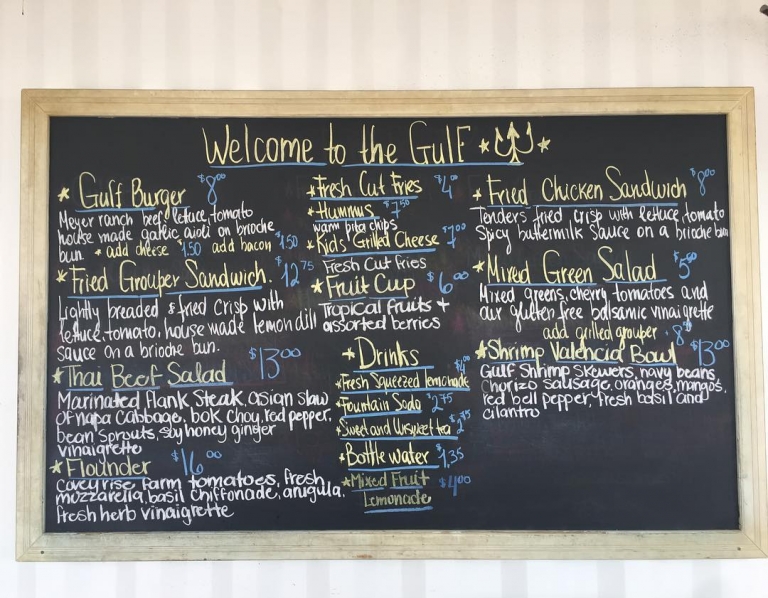 Welcome to the Gulf
Gulf Burger $8.00
Meyer ranch beef, lettuce, tomato
house made garlic aioli on brioche
bun. * add cheese $1.50 add bacon $1.50
Fried Grouper Sandwich. $12.75
Lightly breaded & fried crisp with
lettuce, tomato, house made lemon dill
sauce on a brioche bun.
Thai Beef Salad $13.00
Marinated flank steak, asian slaw
of napa cabbage, bok choy, red pepper,
bean sprouts, soy honey ginger
vinaigrette
Flounder $16.00
Coveyrise farm tomatoes, fresh
mozzarella, basil chiffonade, arugula,
fresh herb vinaigrette
Fresh Cut Fries $4.00
Hummus $7.50
warm pita chips
Kids Grilled Cheese $7.00
Fresh Cut fries
Fruit Cup $6.00
Tropical fruits +
assorted berries
Drinks
Fresh Squeezed lemonade $4.00
Fountain Soda $2.75
Sweet and Unsweet tea $2.75
Bottle water $1.35
Mixed Fruit $4.00
Lemonade
Fried Chicken Sandwich $8.00
Tenders fried crisp with lettuce, tomato
Spicy buttermilk sauce on a brioche bun
Mixed Green Salad $5.00
Mixed greens, cherry tomatoes and
our gluten free balsamic vinaigrette
add grilled grouper
Shrimp Valencia Bowl $13.00
Gulf Shrimp Skewers, navy beans,
Chorizo sausage, oranges, mangos,
red bell pepper, fresh basil and
cilantro